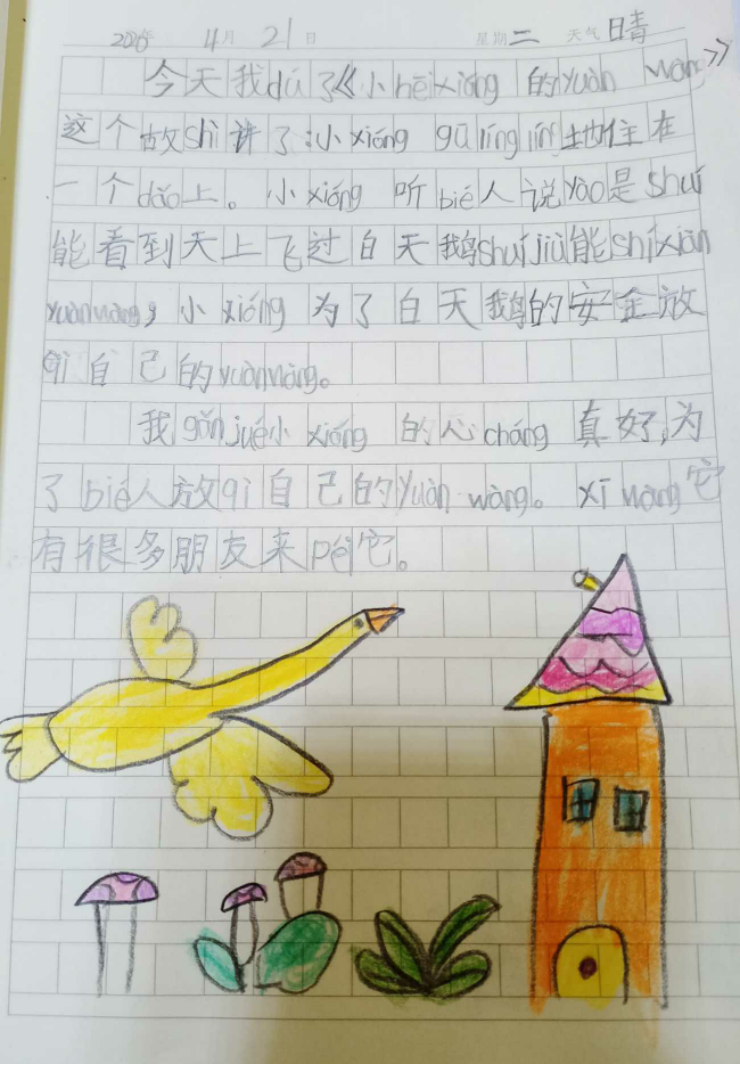 4月 21日 星期二 天气 晴
今天我dú了《小hēixióng 的yuàn wàng》
这个故shì讲了:小xióng gū línglíng地住在
一个dǎo上。小xióng 听bié人说yào是shuí
能看到天上飞过白天鹅shuíjiù能shíxiàn
yuànwàng,小xióng 为了白天鹅的安全放
qì自己的yuànwàng。
我gǎnjué小xióng 的心cháng真好,为
了bié人放qì自己的yuàn wàng。xī wàng它
有很多朋友来péi它。